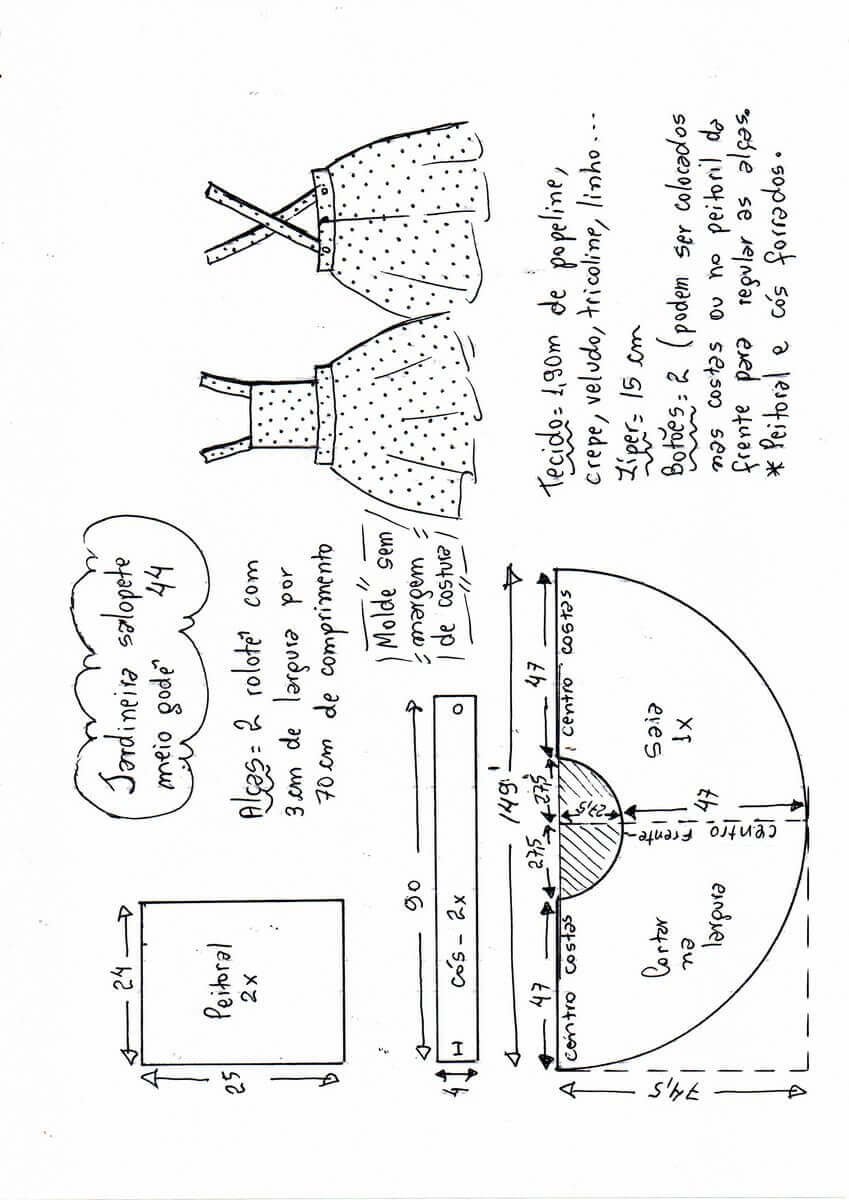 Jardineira salopete
meio godê 44
Alças = 2 rolotê com
3 cm de largura por
70 cm de comprimento
Molde sem
margem
de costura
Tecido = 1,90m de popeline,
crepe, veludo, tricoline, linho...
Zíper = 15 cm
Botões = 2 (podem ser colocados
nas costas ou no peitoril da
frente para regular as alças.
* Peitoral e cós forrados.
24
25
Peitoral
2x
90
4
cós - 2x
149
47
27,5
27,5
47
centro costas
centro costas
27,5
47
centro frente
Cortar
na
largura
Saia
1x
74,5